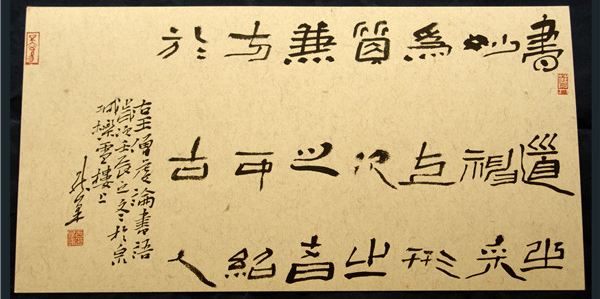 書道之
妙神采
為上形
質次之
兼之者
方可紹
於古人
右王僧虔論書語
歲次壬辰之冬於泉
城雪樓上